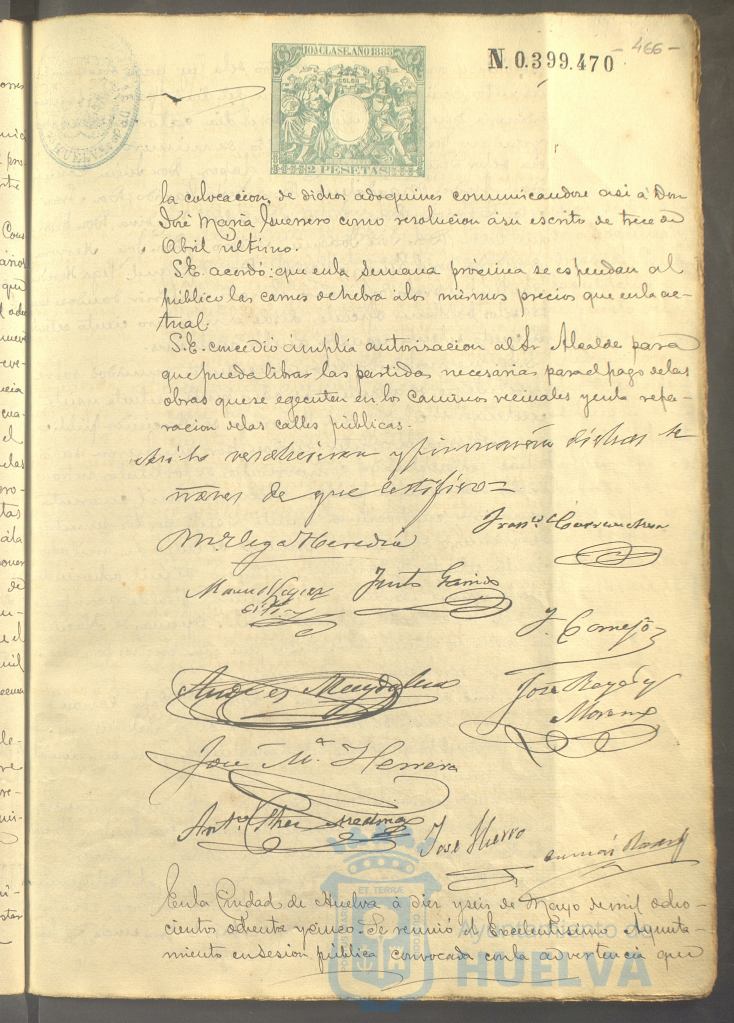 10A CLASE. AÑO 1883
N. 0.399.470
- 466 -
COLON
2 PESETAS
HUELVA
la colocacion, de dichos adoquines comunicandose asi á Don
José Maria Guerrero como resolucion á su escrito de trece de
Abril último.
S.E. acordó: que en la semana próxima se espendan al
público las carnes de hebra á los mismos precios que en la ac-
tual.
S.E. concedió ámplia autorisacion al Sr Alcalde para
que pueda librar las partidas necesarias para el pago de las
obras que se egecuten en los Caminos vecinales y en la repa-
racion de las calles públicas.
Asi lo resolvieron y firmarán dichos Se
ñores de que certifico=
M. Vega Heredia
Justo Garrido
J. Cornejo
Andres Magdalena
José Rayo y
Moreno
José Mª. Herrera
José Hierro
En la Ciudad de Huelva á diez y seis de Mayo de mil ocho-
cientos ochenta y cinco. Se reunió el Excelentisimo Ayunta-
miento en sesion pública convocada con la advertencia que
ET TERRÆ
Ayuntamiento de
HUELVA